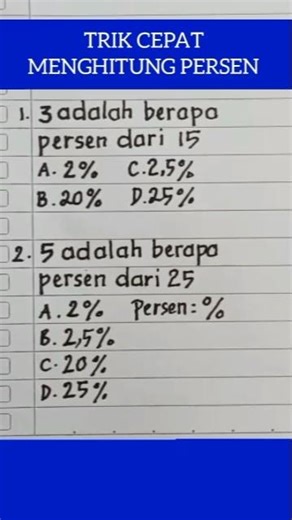 TRIK CEPAT
MENGHITUNG PERSEN
1. 3 adalah berapa
persen dari 15
A. 2% C. 2,5%
B. 20% D. 25%
2. 5 adalah berapa
persen dari 25
A. 2% Persen: %
B. 2,5%
C. 20%
D. 25%